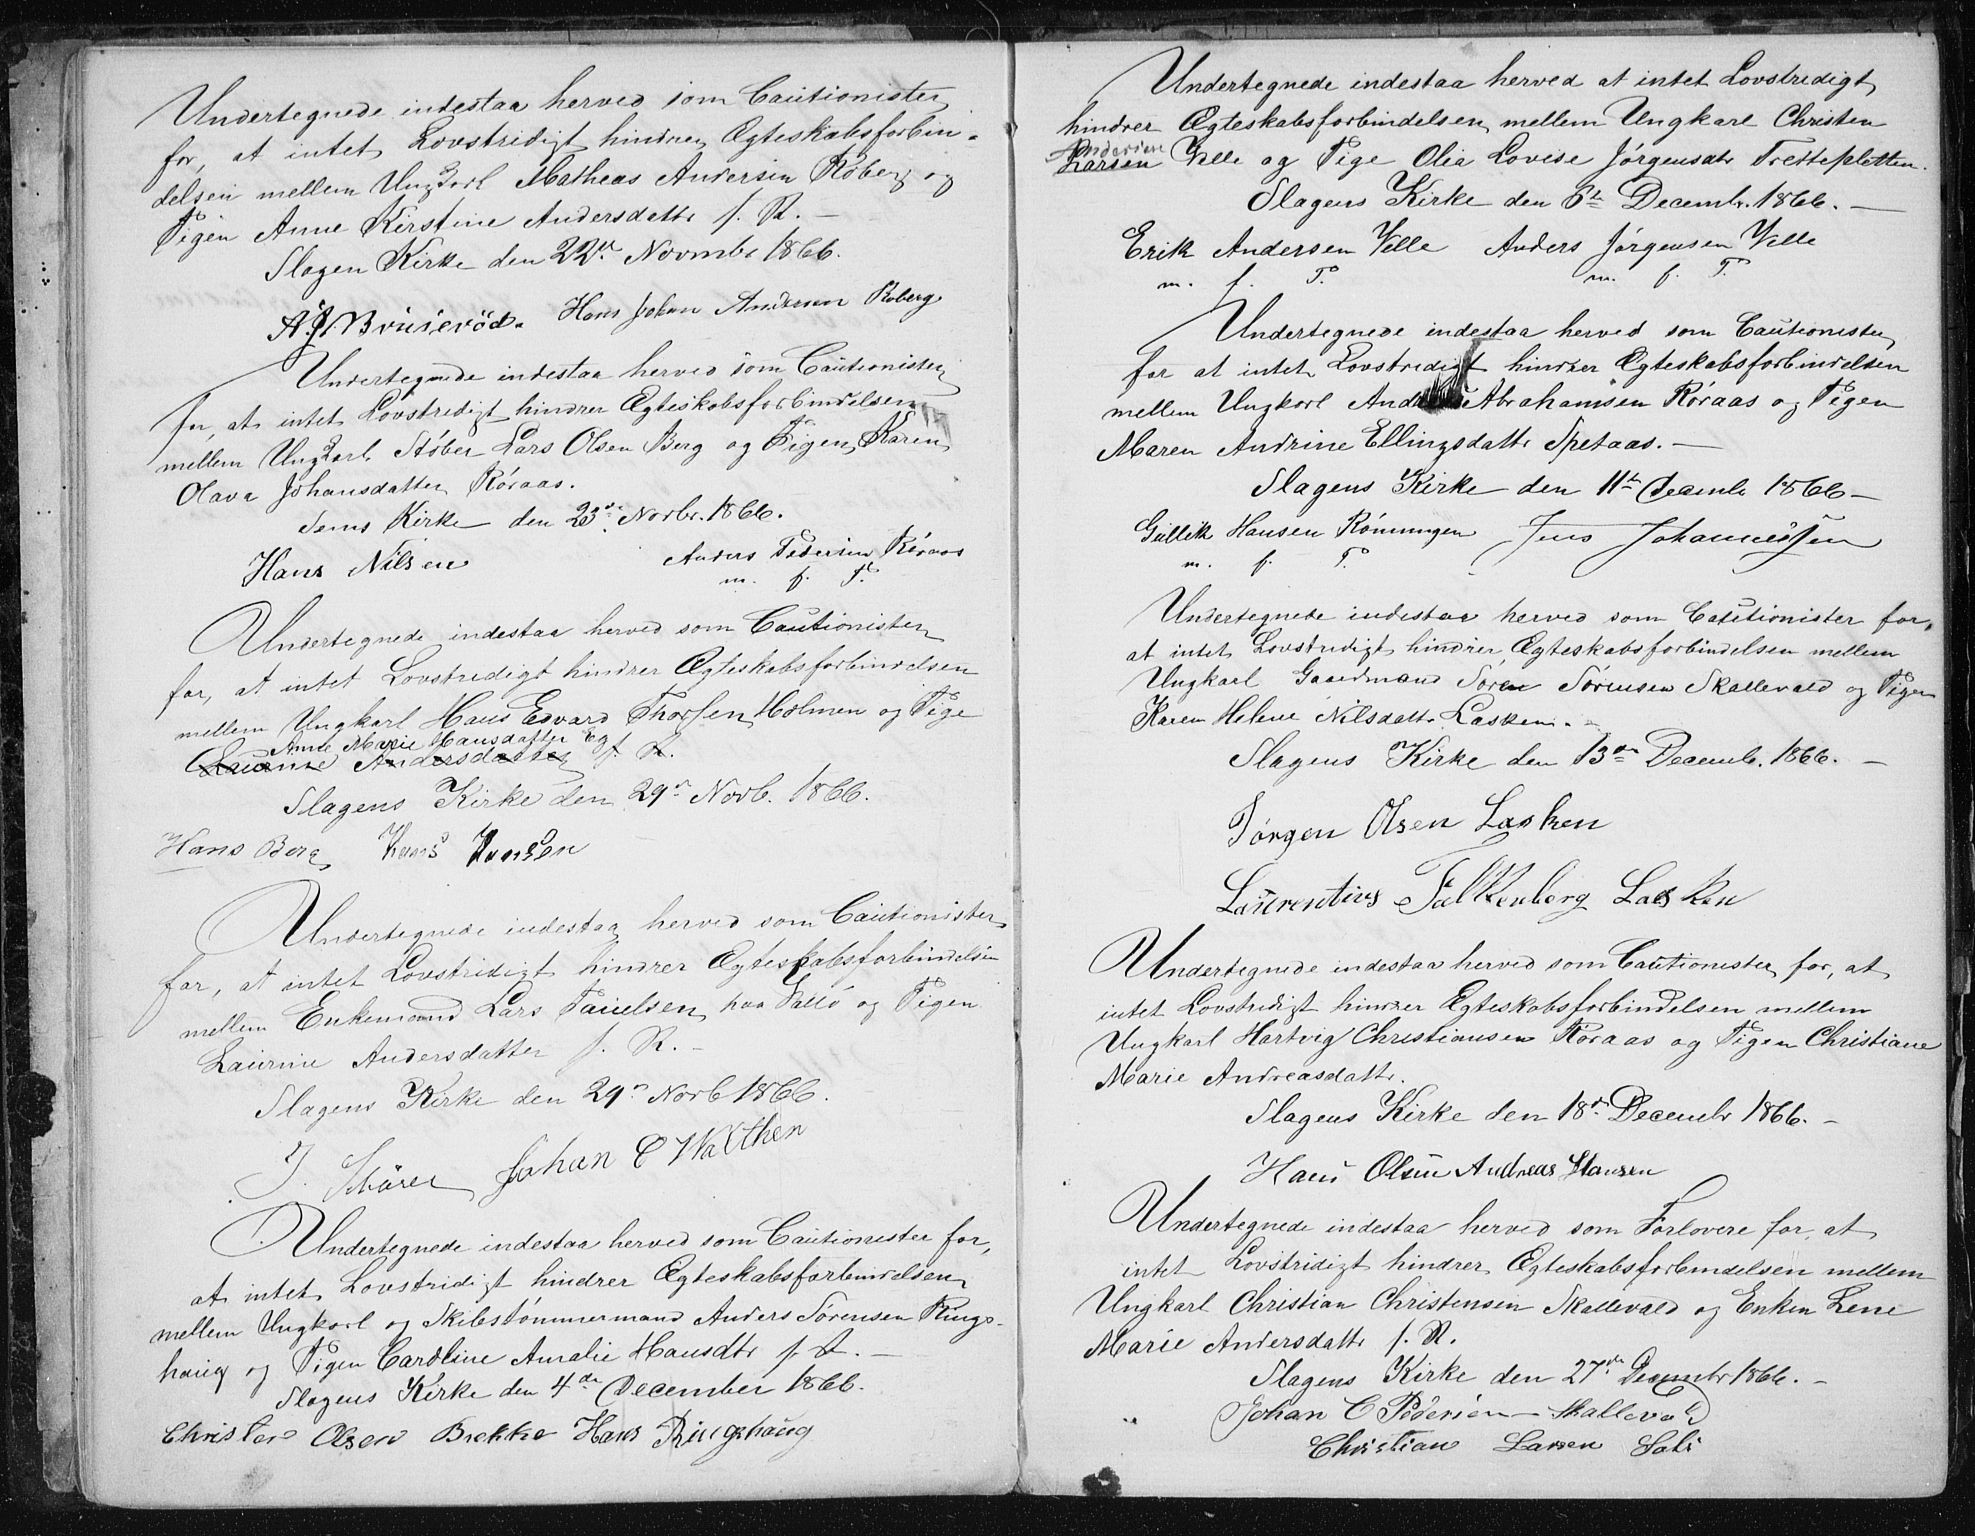 Undertegnede indestaa herved som Cautionister
for, at intet Lovstridigt hindrer Ægteskabsforbin-
delsen mellem Ungkarl Matheas Andersen Roberg og
Pigen Anne Kirstine Andersdattr f. R. —
Slagen Kirke den 22de Novmbr 1866.
Hans Johan Andersen Roberg
Undertegnede indestaa herved som Cautionister
for, at intet Lovstridigt hindrer Ægteskabsforbindelsen
mellem Ungkarl Støber Lars Olsen Berg og Pigen Karen
Olava Johansdatter Røraas.
Sems Kirke den 23de Novbr. 1866.
Hans Nilsen Anders Pedersen Røraas
m. f. P.
Undertegnede indestaa herved som Cautionister
for, at intet Lovstridigt hindrer Ægteskabsforbindelsen
mellem Ungkarl Hans Edvard Thorsen Holmen og Pige
Anne Marie Hansdatter Eg
Laurine Andersdatter f. R.
Slagens Kirke den 29de Novb. 1866.
Hans Berg Hans Hansen
Undertegnede indestaa herved som Cautionister
for, at intet Lovstridigt hindrer Ægteskabsforbindelsen
mellem Enkemand Lars Paulsen paa Vallø og Pigen
Laurine Andersdatter f. R. —
Slagens Kirke den 29de Novb 1866.
Johan C Walthen
Undertegnede indestaa herved som Cautionister for,
at intet Lovstridigt hindrer Ægteskabsforbindelsen
mellem Ungkarl og Skibstømmermand Anders Sørensen Rings-
houg og Pigen Caroline Amalie Hansdtr f. A. —
Slagens Kirke den 4de December 1866.
Christen Olsen Brekke Hans Ringshaug
Undertegnede indestaa herved at intet Lovstridigt
hindrer Ægteskabsforbindelsen mellem Ungkarl Christen
Andersen
Larsen Velle og Pige Olia Lovise Jørgensdtr Trettepletten.
Slagens Kirke den 6te Decembr. 1866. —
Erik Andersen Velle Anders Jørgensen Velle
m. f. P. m. f. P.
Undertegnede indestaa herved som Cautionister
for at intet Lovstridigt hindrer Ægteskabsforbindelsen
mellem Ungkarl Abrahamsen Røraas og Pigen
Maren Andrine Ellingsdattr Spetaas. —
Slagens Kirke den 11te Decembr 1866 —
Gullik Hansen Rønningen Jens Johannessen
m. f. P.
Undertegnede indestaa herved som Cautionister for,
at intet Lovstridigt hindrer Ægteskabsforbindelsen mellem
Ungkarl Gaardmand Søren Sørensen Skallevald og Pigen
Karen Helene Nilsdattr Lasken. —
Slagens Kirke den 13de Decembr. 1866. —
Jørgen Olsen Lasken
Laurentius Falkkenberg Lasken
Undertegnede indestaa herved som Cautionister for, at
intet Lovstridigt hindrer Ægteskabsforbindelsen mellem
Ungkarl Hartvig Christiansen Røraas og Pigen Christiane
Marie Andreasdattr.
Slagens Kirke den 18de Decembr 1866. —
Hans Olsen Andreas Hansen
Undertegnede indestaa herved som Forlovere for, at
intet Lovstridigt hindrer Ægteskabsforbindelsen mellem
Ungkarl Christian Christensen Skallevald og Enken Lene
Marie Andersdattr f. R.
Slagens Kirke den 27de Decembr 1866. —
Johan C Pedersen — Skallevold
Christian Larsen